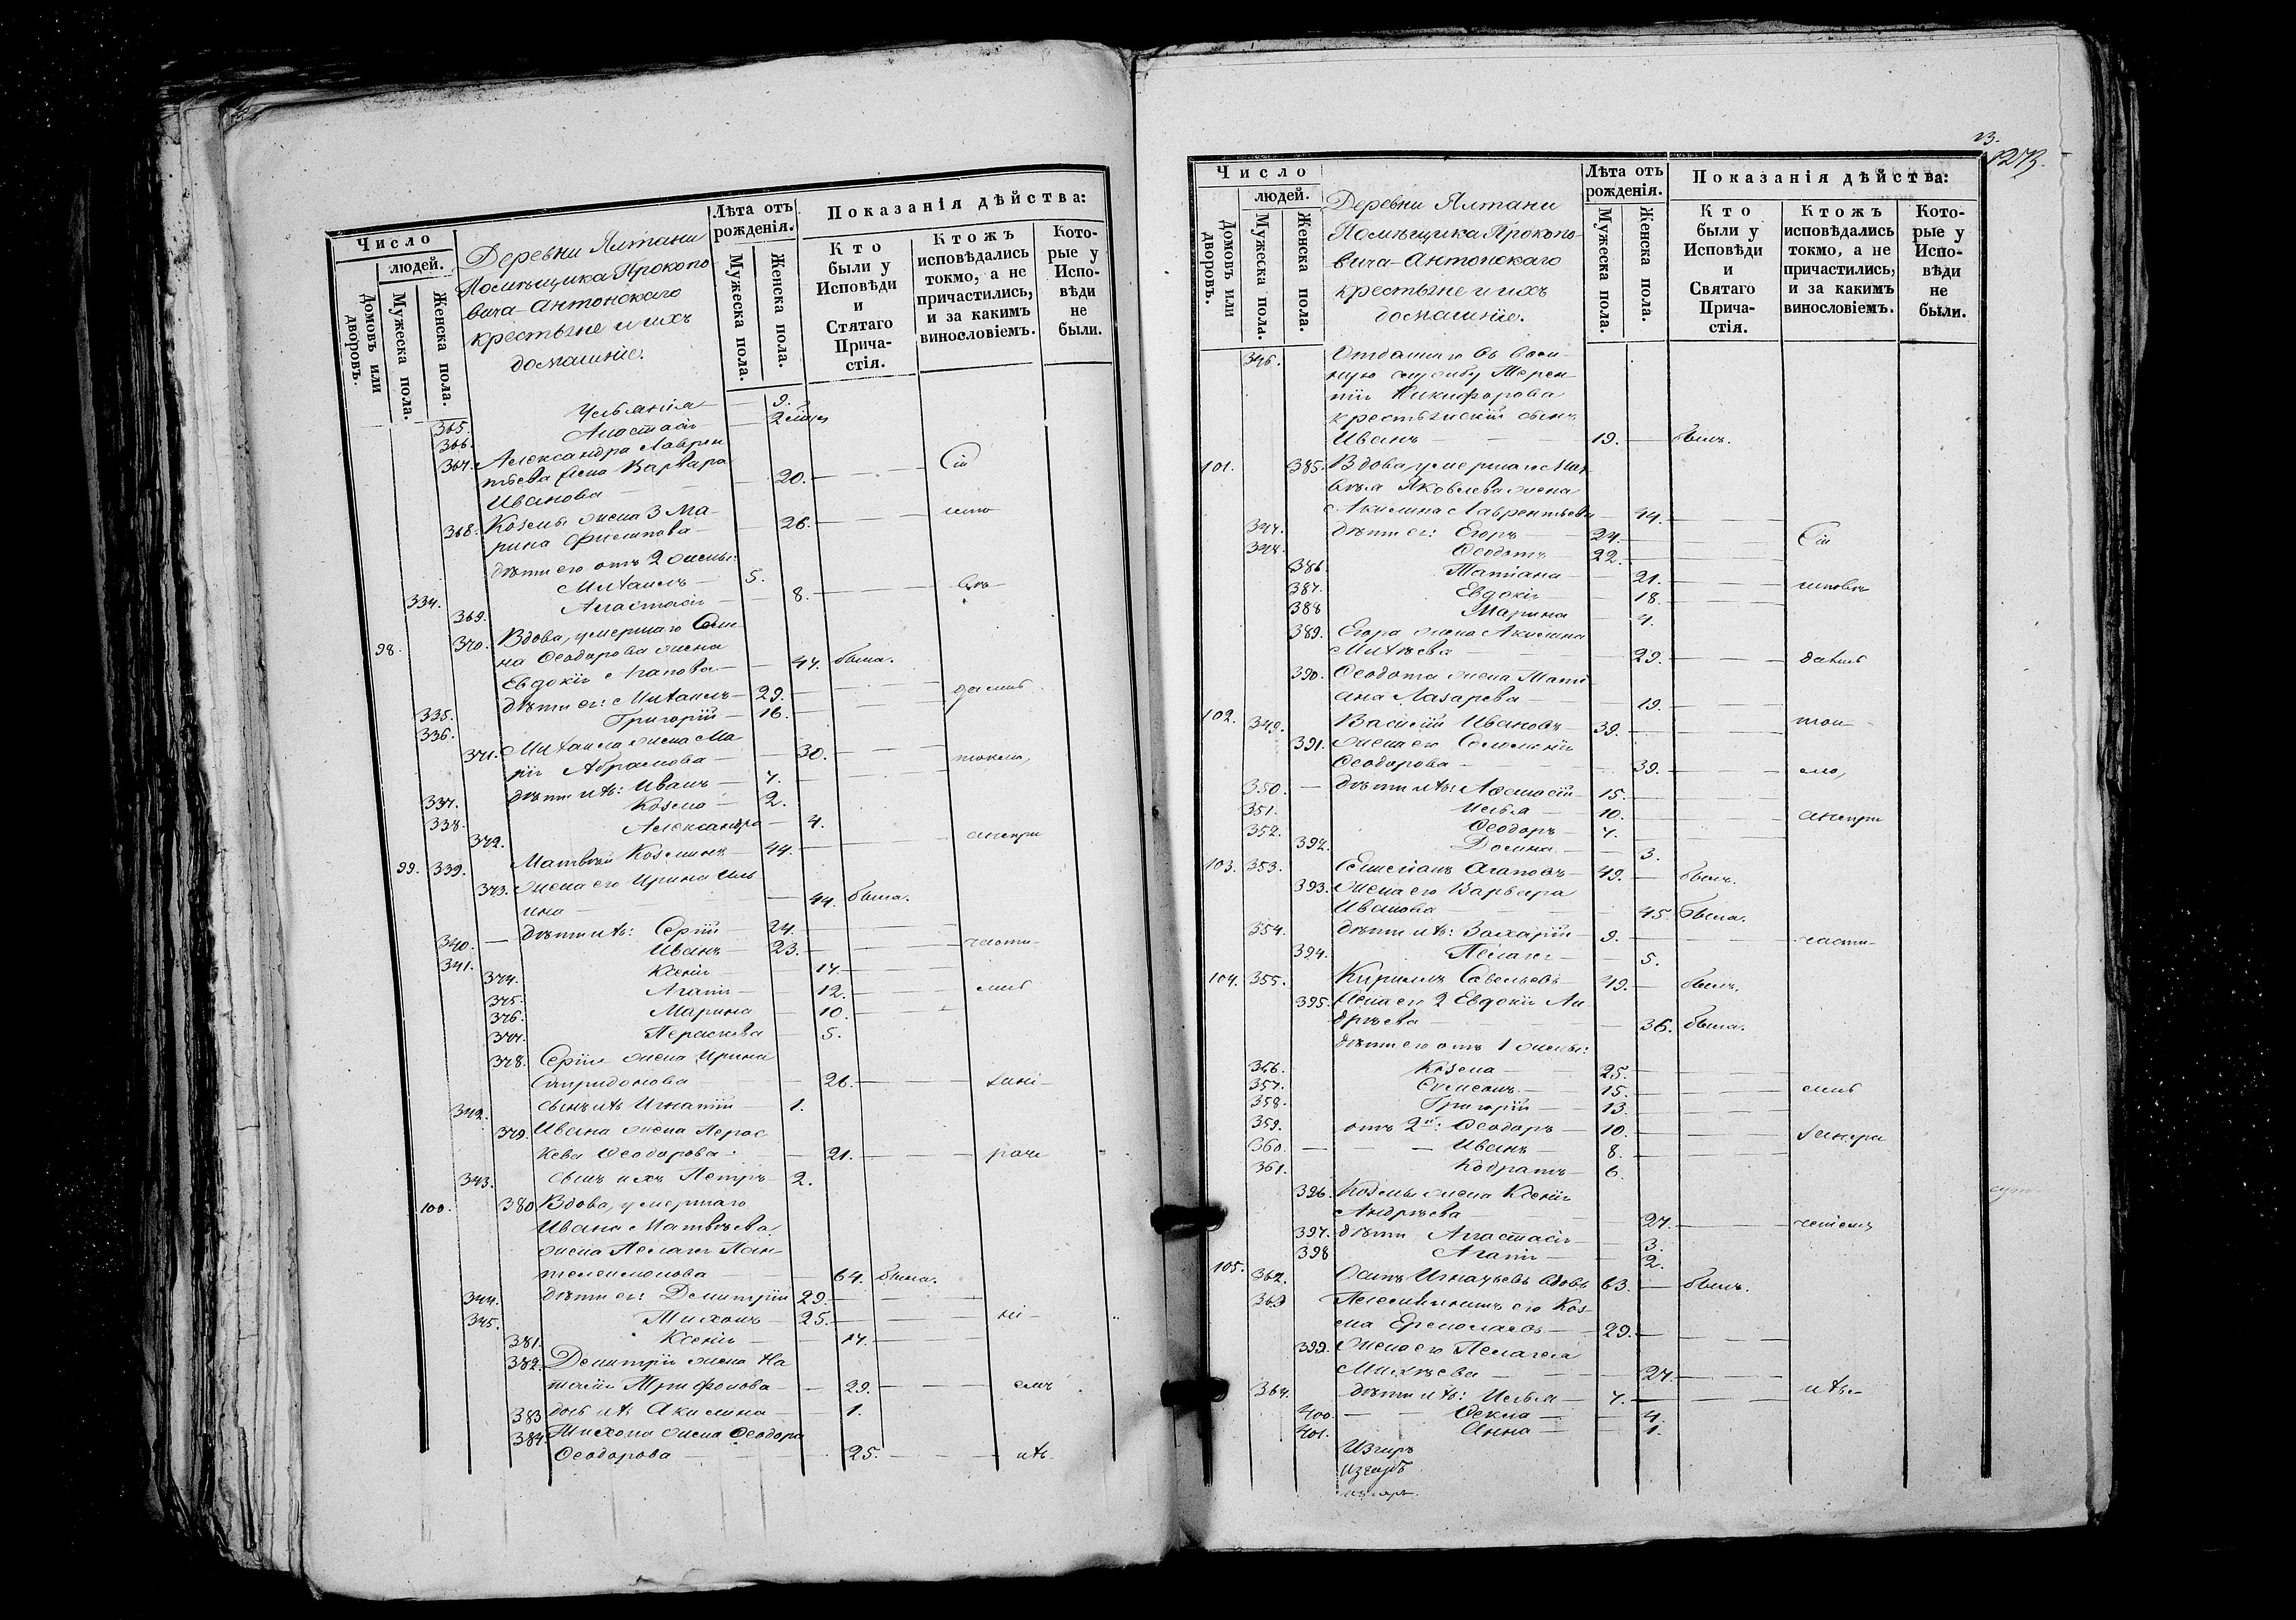 Число
людей.
Домовъ или дворовъ.
Мужеска пола.
Женска пола.
Деревни Ялтани
Помѣщика Прокопо
вича-Антонскаго
крестьяне и ихъ
домашніе.
Лѣта отъ рожденія.
Мужеска пола.
Женска пола.
Показанія дѣйства:
Кто были у Исповѣди и Стятаго Причастія.
Ктожъ исповѣдались токмо, а не причастились, и за какимъ винословіемъ.
Которые у Исповѣди не были.
365. Ульянія — 9.
366. Анастасія — 2
367. Александра Лаврен
тьева жена Варвара
Иванова — 20. — Сіи
368. Козмы жена 3 Ма-
рина Филипова — 26. —
дѣти его отъ 2 жены:
334. Михаилъ — 5.
369. Анастасія — 8. —
98. 370. Вдова, умершаго Семе
на Ѳеодорова жена
Евдокія Агапова — 47. была.
335. дѣти ея: Михаилъ — 29. —
336. Григорій — 16. —
371. Михаила жена Ма
рія Абрамова — 30. — токмо,
337. дѣти ихъ: Иванъ — 7.
338. Козма — 2.
372. Александра — 4.
99. 339. Матвѣй Козминъ — 44. — а не при
373. жена его Ирина Иль
ина — 44. была.
340. — дѣти ихъ: Сергій — 24. —
341. Иванъ — 23. — части-
374. Ксенія — 17. —
375. Агапія — 12. —
376. Марина — 10. —
377. Параскева — 5.
378. Сергія жена Ирина
Спиридонова — 26. —
342. сынъ ихъ Игнатій — 1.
379. Ивана жена Парас
кева Ѳеодорова — 21. —
343. сынъ ихъ Петръ — 2.
100. 380. Вдова, умершаго
Ивана Матвѣева
жена Пелагія Пан-
телеимонова — 64. была.
344. дѣти ея: Димитрій 29. —
345. Тихонъ — 25. —
381. Ксенія — 17. —
382. Димитрія жена На
талія Трифонова — 29. —
383 дочь ихъ Акилина — 1.
384 Тихона жена Ѳеодора
Ѳеодорова — 25. — ихъ.
1273.
Число
людей.
Домовъ или дворовъ.
Мужеска пола.
Женска пола.
Деревни Ялтани
Помѣщика Прокопо-
вича-Антонскаго
крестьяне и ихъ
домашніе.
Лѣта отъ рожденія.
Мужеска пола.
Женска пола.
Показанія дѣйства:
Кто были у Исповѣди и Святаго Причастія.
Ктожъ исповѣдались токмо, а не причастились, и за какимъ винословіемъ.
Которые у Исповѣди не были.
346. Отданнаго въ воен-
ную службу Терен
тія Никифорова
крестьянскій сынъ
Иванъ — 19. — былъ.
101. 385. Вдова, умершаго Мат
вѣя Яковлева жена
Акилина Лаврентьева — 44. —
347. дѣти ея: Егоръ — 24. — Сіи
348. Ѳеодотъ — 22. —
386. Татіана — 21. —
387. Евдокія — 18. —
388 Марина — 4.
389. Егора жена Акилина
Михѣева — 29. —
390. Ѳеодота жена Тати
ана Лазарева — 19. —
102. 349. Василій Ивановъ — 39. — ток-
391. жена его Соломонія
Ѳеодорова — 39. — мо,
350. — дѣти ихъ: — 15. —
351. Илья — 10. — а не при
352. Ѳеодоръ — 7. —
392. Домна — 3.
103. 353. Емеліанъ Агаповъ — 49. — былъ.
393. жена его Варвара
Иванова — 45. была.
354. дѣти ихъ: Захарій — 9. — части-
394. Пелагія — 5.
104. 355. Кириллъ Савельевъ 49. — былъ.
395. жена его 2 Евдокія Ан
дрѣева — 36. была.
дѣти его отъ 1 жены:
356. Козма — 25. —
357. Симеонъ — 15. —
358. Григорій — 13. —
359. отъ 2й: Ѳеодоръ — 10. —
360. — Иванъ — 8. —
361. Кодратъ — 6.
396. Козмы жена Ксенія
Андрѣева — 27. —
397. дѣти Анастасія — 3.
398 Агапія — 2.
105. 362. Осипъ Игнатьевъ вдовъ 63. — былъ.
363 Племянникъ его Коз-
ма Ермолаевъ — 29. —
399. жена его Пелагея
Михѣева — 27. —
364. дѣти ихъ: Илья — 7. — ихъ.
400. — Ѳекла — 4.
401. Анна — 1.